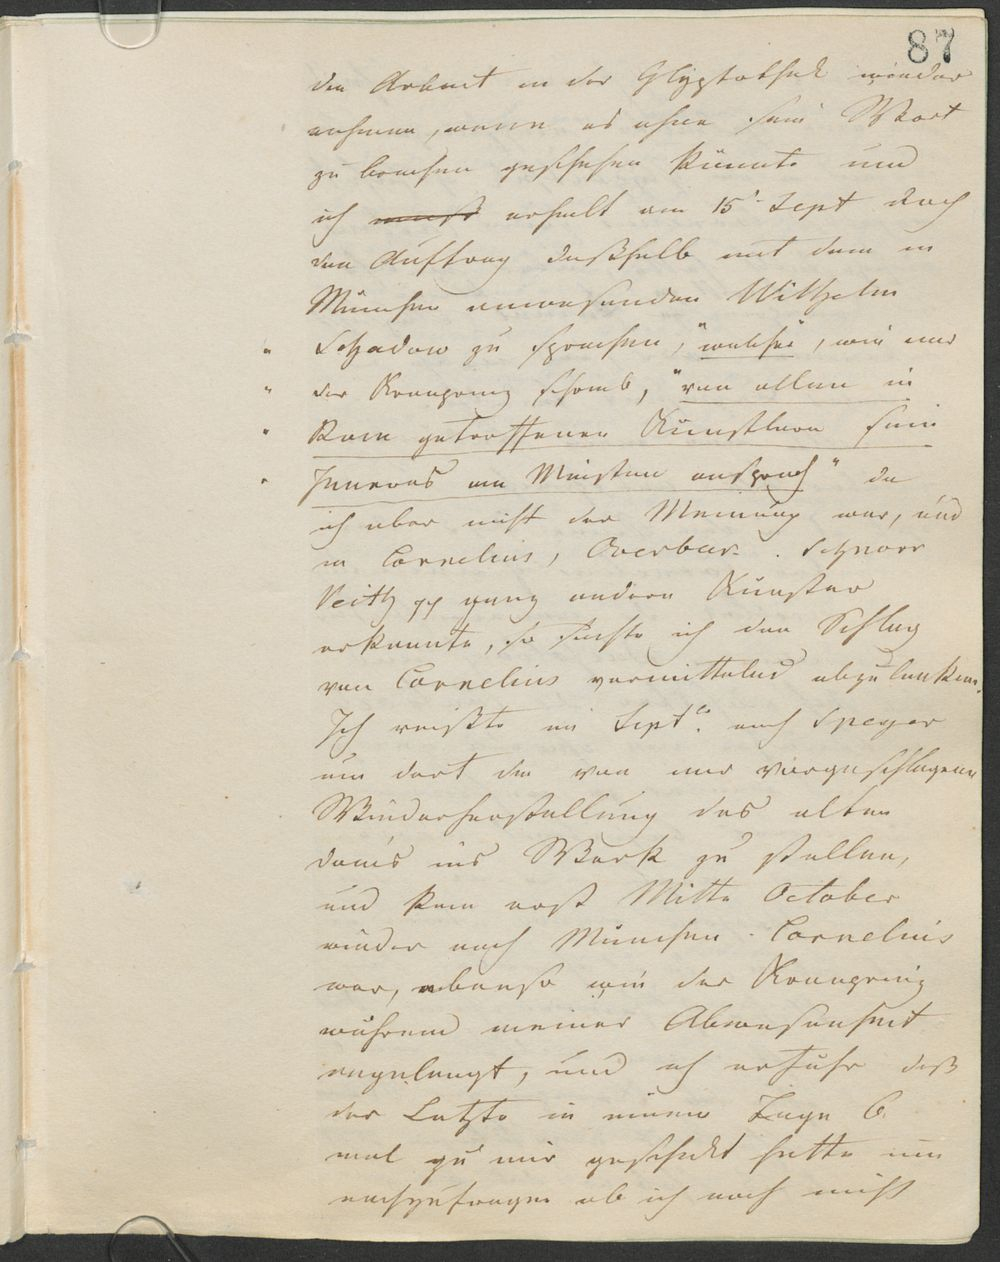 87
den Arbeit in der Glyptothek wieder
nehmen, wenn es ohne sein Wort
zu brechen geschehen könnte und
ich muß erhielt am 15t Sept noch
den Auftrag deßhalb mit dem in
München anwesenden Wilhelm
" Schadow zu sprechen, "welcher, wie mir
" der Kronprinz schrieb, "von allen in
" Rom getroffenen Künstlern sein
" Inneres am Meisten ansprach" da
ich aber nicht der Meinung war, und
in Cornelius, Overbeck. Schnorr
Veith pp ganz andere Künstler
erkannte, so suchte ich den Schlag
von Cornelius vermittelnd abzulenken.
Ich reißte im Septbr. nach Speyer
um dort die von mir vorgeschlagene
Wiederherstellung des alten
Doms ins Werk zu stellen,
und kam erst Mitte October
wieder nach München. Cornelius
war, ebenso wie der Kronprinz
während meiner Abwesenheit
angelangt, und ich erfuhr daß
der Letzte in einem Tage 6
mal zu mir geschickt hatte um
nachzufragen ob ich noch nicht